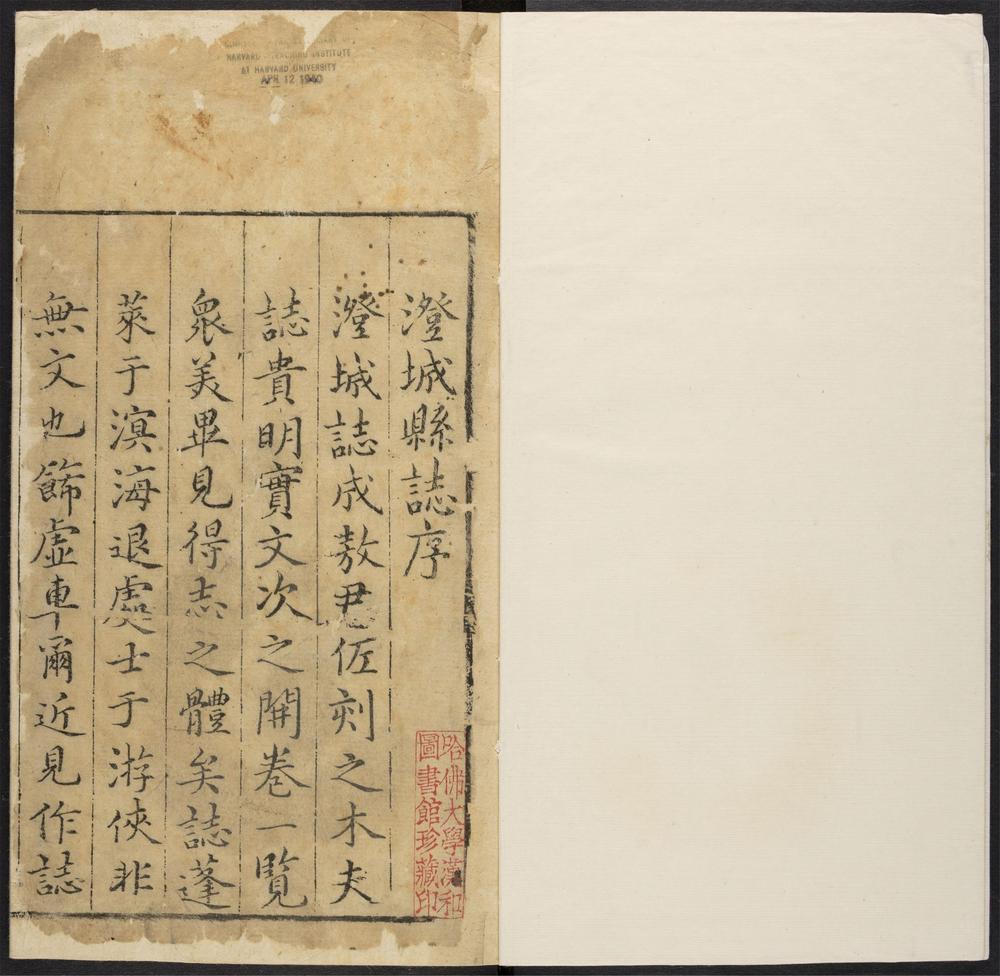 澄城縣誌序
澄城誌成敖君佐刻之木夫
誌貴明實文次之開卷一覧
衆美畢見得志之體矣誌蓬
萊于溟海退處士于游俠非
無文也餙虛車爾近見作誌
哈佛大學漢和
圖書館珍藏印
HARVARD INSTITUTE
AT HARVARD UNIVERSITY
APR 12 1940